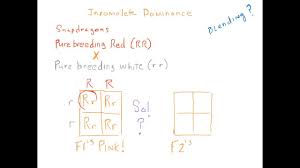 Incomplete Dominance
Blending?
Snapdragons
Pure breeding Red (RR)
X
Pure breeding white (rr)
R R
r Rr Rr
r Rr Rr
?
F1's Pink!
F2's